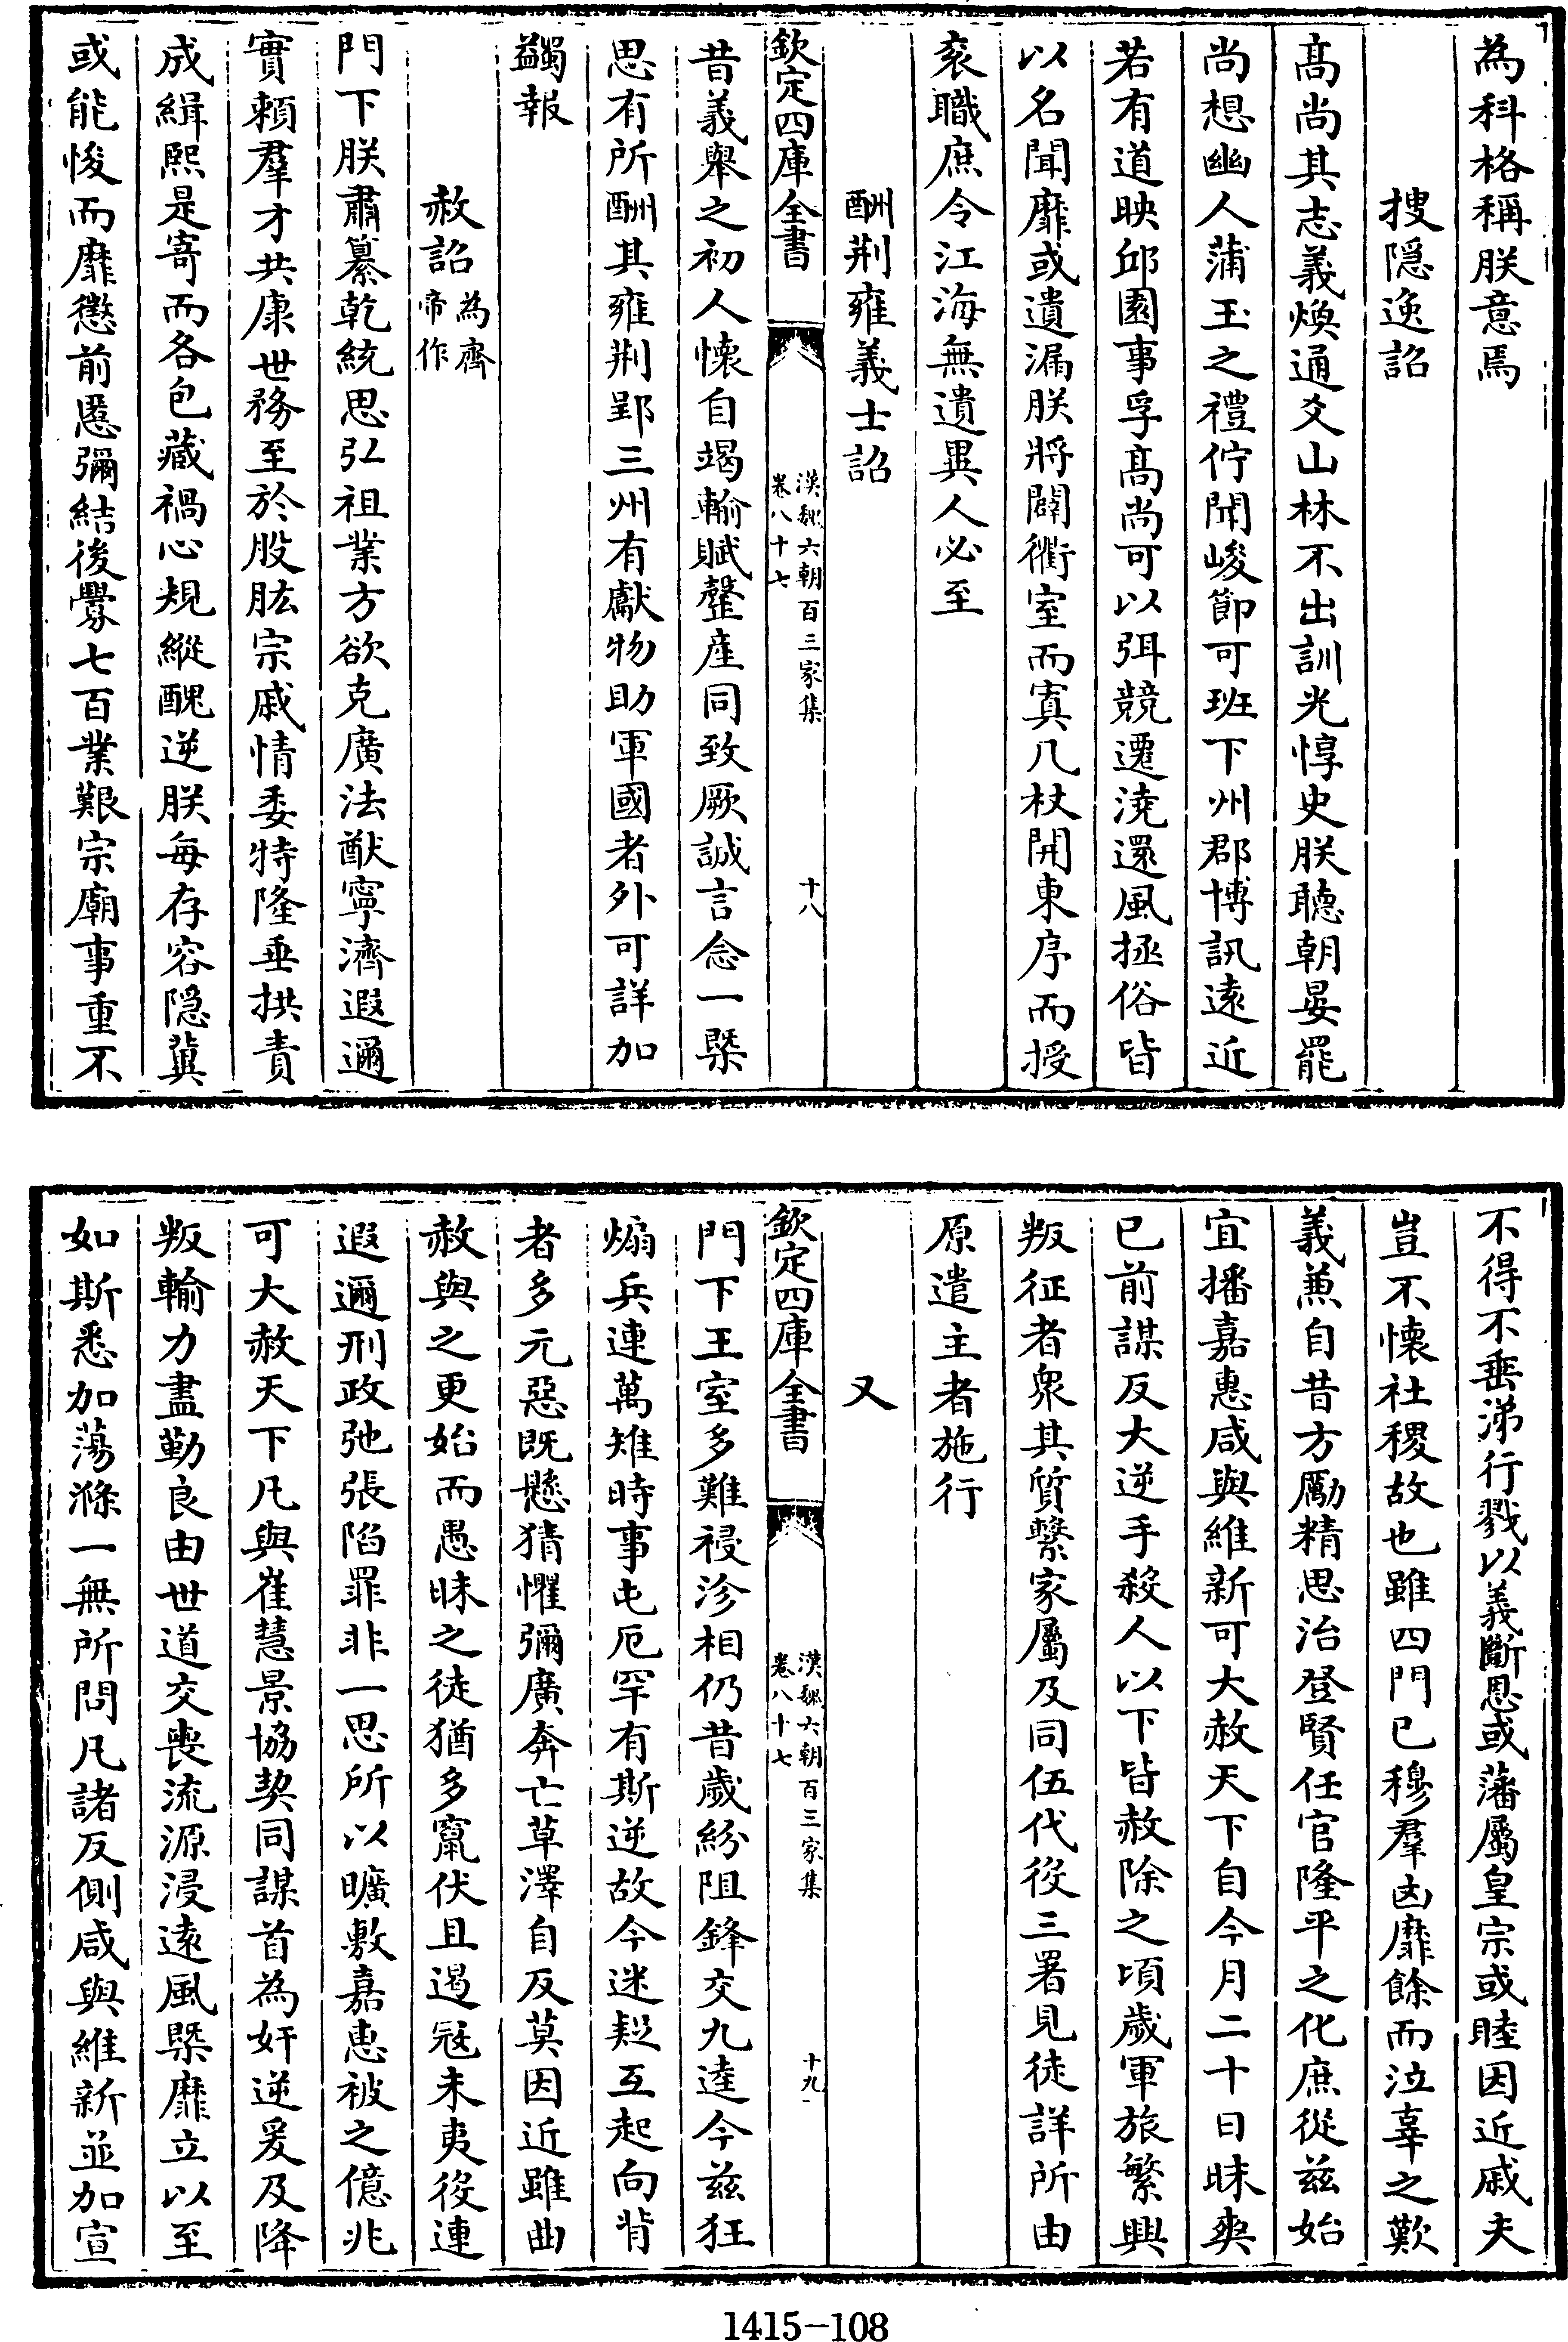 為科格稱朕意焉
搜隠逸詔
髙尚其志義煥通爻山林不出訓光惇史朕聽朝晏罷
尚想幽人蒲玉之禮佇聞峻節可班下州郡博訊逺近
若有道映邱園事孚髙尚可以弭競遷澆還風拯俗皆
以名聞靡或遺漏朕將闢衢室而寘几杖開東序而授
衮職庶令江海無遺異人必至
酬荆雍義士詔
欽定四庫全書
漢魏六朝百三家集
卷八十七
十八
昔義舉之初人懷自竭輸賦罄産同致厥誠言念一槩
思有所酬其雍荆郢三州有獻物助軍國者外可詳加
蠲報
赦詔
為齊
帝作
門下朕肅纂乾統思弘祖業方欲克廣法猷寧濟遐邇
實賴羣才共康世務至於股肱宗戚情委特隆垂拱責
成緝熙是寄而各包藏禍心規縱醜逆朕每存容隠冀
或能悛而靡懲前慝彌結後釁七百業艱宗廟事重不
不得不垂涕行戮以義斷恩或藩屬皇宗或睦因近戚夫
豈不懷社稷故也雖四門已穆羣凶靡餘而泣辜之歎
義兼自昔方勵精思治登賢任官隆平之化庶從兹始
宜播嘉惠咸與維新可大赦天下自今月二十日昧爽
已前謀反大逆手殺人以下皆赦除之頃歲軍旅繁興
叛征者衆其質繫家屬及同伍代役三署見徒詳所由
原遣主者施行
又
欽定四庫全書
漢魏六朝百三家集
卷八十七
十九
門下王室多難祲沴相仍昔歲紛阻鋒交九逵今兹狂
煽兵連萬雉時事屯厄罕有斯逆故今迷疑互起向背
者多元惡既懸猜懼彌廣奔亡草澤自反莫因近雖曲
赦與之更始而愚昧之徒猶多竄伏且遏冦未夷役連
遐邇刑政弛張陷罪非一思所以曠敷嘉惠被之億兆
可大赦天下凡與崔慧景協契同謀首為奸逆爰及降
叛輸力盡勤良由世道交喪流源浸逺風槩靡立以至
如斯悉加蕩滌一無所問凡諸反側咸與維新並加宣
1415-108